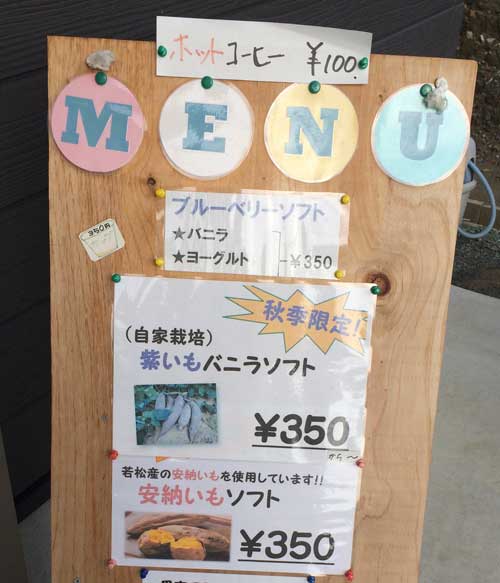 ホットコーヒー ¥100
MENU
350円
ブルーベリーソフト
★バニラ
★ヨーグルト ¥350
秋季限定!
(自家栽培)
紫いもバニラソフト
¥350
から〜
若松産の安納いもを使用しています!!
安納いもソフト
¥350